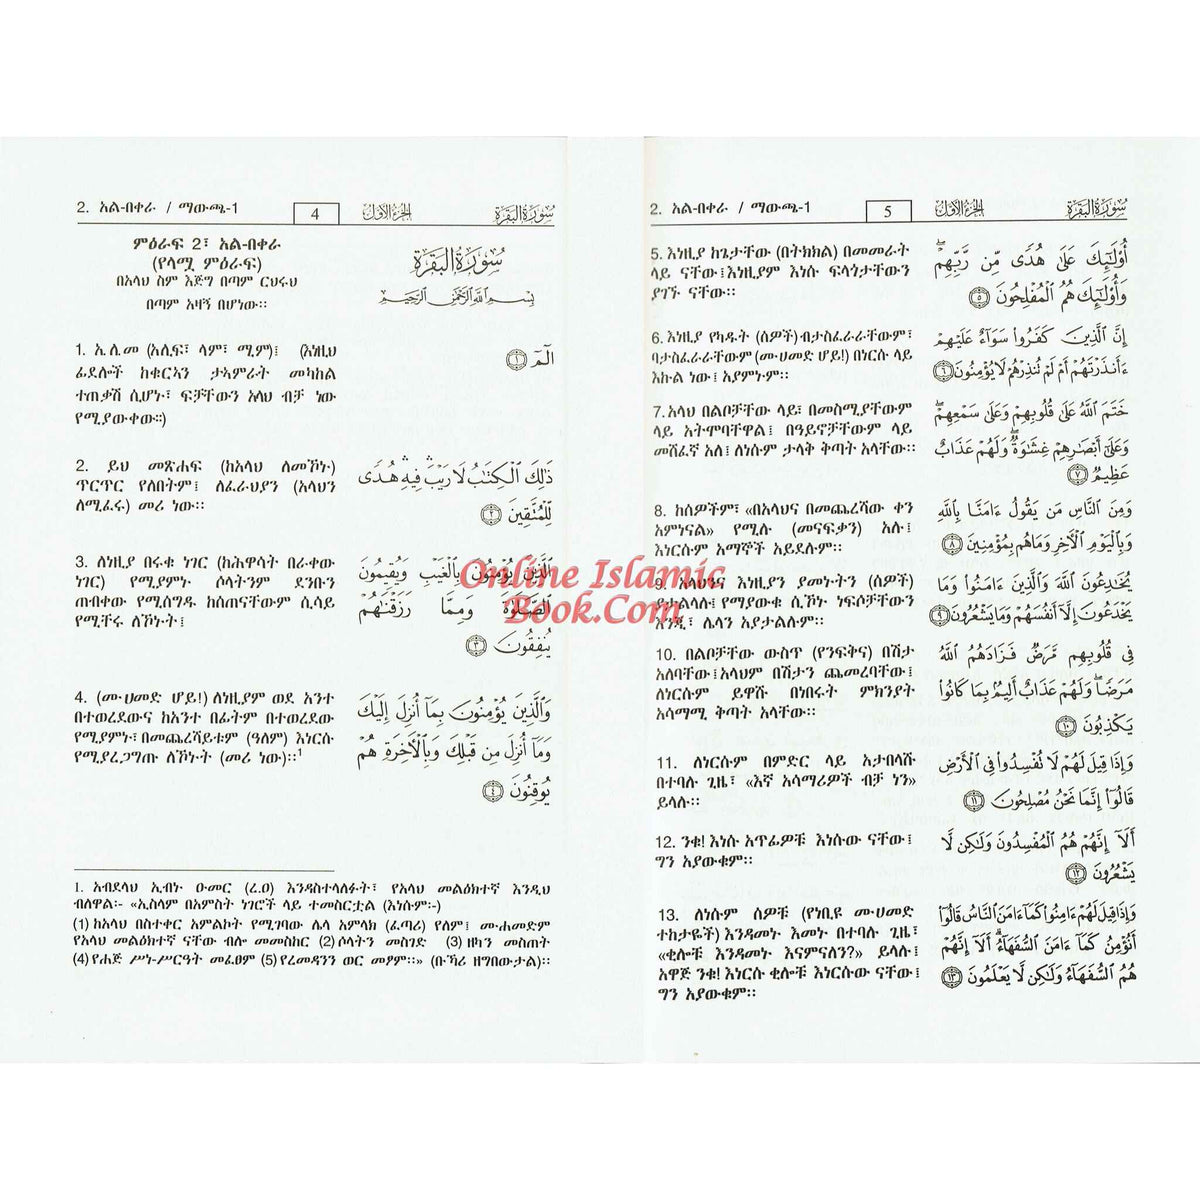 2. አል-በቀራ / ማውጫ-1
4
الجزء الأول
سورة البقرة
ምዕራፍ 2፣ አል-በቀራ
(የላሟ ምዕራፍ)
በአላህ ስም እጅግ በጣም ርህሩህ
በጣም አዛኝ በሆነው።
سُورَةُ الْبَقَرَةِ
بِسْمِ اللَّهِ الرَّحْمَٰنِ الرَّحِيمِ
1. አ.ሊ.መ (አሊፍ፣ ላም፣ ሚም)፤ (እነዚህ
ፊደሎች ከቁርኣን ታኣምራት መካከል
ተጠቃሽ ሲሆኑ፣ ፍቻቸውን አላህ ብቻ ነው
የሚያውቀው።)
الٓمٓ ١
2. ይህ መጽሐፍ (ከአላህ ለመኾኑ)
ጥርጥር የለበትም፤ ለፈራህያን (አላህን
ለሚፈሩ) መሪ ነው።
ذَٰلِكَ الْكِتَابُ لَا رَيْبَ ۛ فِيهِ ۛ هُدًى
لِّلْمُتَّقِينَ ٢
3. ለነዚያ በሩቁ ነገር (ከሕዋሳት በራቀው
ነገር) የሚያምኑ ሶላትንም ደንቡን
ጠብቀው የሚሰግዱ ከሰጠናቸውም ሲሳይ
የሚቸሩ ለኾኑት፤
الَّذِينَ يُؤْمِنُونَ بِالْغَيْبِ وَيُقِيمُونَ
الصَّلَوٰةَ وَمِمَّا رَزَقْنَاهُمْ
يُنفِقُونَ ٣
4. (ሙሀመድ ሆይ!) ለነዚያም ወደ አንተ
በተወረደውና ከአንተ በፊትም በተወረደው
የሚያምኑ፣ በመጨረሻይቱም (ዓለም) እነርሱ
የሚያረጋግጡ ለኾኑት (መሪ ነው)።1
وَالَّذِينَ يُؤْمِنُونَ بِمَا أُنزِلَ إِلَيْكَ
وَمَا أُنزِلَ مِن قَبْلِكَ وَبِالْآخِرَةِ هُمْ
يُوقِنُونَ ٤
1. አብደላህ ኢብኑ ዑመር (ረ.ዐ) እንዳስተላለፉት፣ የአላህ መልዕክተኛ እንዲህ
ብለዋል፡- «ኢስላም በአምስት ነገሮች ላይ ተመስርቷል (እነሱም፡-)
(1) ከአላህ በስተቀር አምልኮት የሚገባው ሌላ አምላክ (ፈጣሪ) የለም፤ ሙሐመድም
የአላህ መልዕክተኛ ናቸው ብሎ መመስከር (2) ሶላትን መስገድ (3) ዘካን መስጠት
(4) የሐጅ ሥነ-ሥርዓት መፈፀም (5) የረመዳንን ወር መፆም።» (ቡኻሪ ዘግበውታል)።
2. አል-በቀራ / ማውጫ-1
5
الجزء الأول
سورة البقرة
5. እነዚያ ከጌታቸው (በትክክል) በመመራት
ላይ ናቸው፤እነዚያም እነሱ ፍላጎታቸውን
ያገኙ ናቸው።
أُولَٰئِكَ عَلَىٰ هُدًى مِّن رَّبِّهِمْ ۖ
وَأُولَٰئِكَ هُمُ الْمُفْلِحُونَ ٥
6. እነዚያ የካዱት (ሰዎች) ብታስፈራራቸውም፣
ባታስፈራራቸውም (ሙሀመድ ሆይ!) በነርሱ ላይ
እኩል ነው፤ አያምኑም።
إِنَّ الَّذِينَ كَفَرُوا سَوَاءٌ عَلَيْهِمْ
ءَأَنذَرْتَهُمْ أَمْ لَمْ تُنذِرْهُمْ لَا يُؤْمِنُونَ ٦
7. አላህ በልቦቻቸው ላይ፣ በመስሚያቸውም
ላይ አትሞባቸዋል፤ በዓይኖቻቸውም ላይ
መሸፈኛ አለ፤ ለነሱም ታላቅ ቅጣት አላቸው።
خَتَمَ اللَّهُ عَلَىٰ قُلُوبِهِمْ وَعَلَىٰ سَمْعِهِمْ ۖ
وَعَلَىٰ أَبْصَارِهِمْ غِشَاوَةٌ ۖ وَلَهُمْ عَذَابٌ
عَظِيمٌ ٧
8. ከሰዎችም፣ «በአላህና በመጨረሻው ቀን
አምነናል» የሚሉ (መናፍቃን) አሉ፤
እነርሱም አማኞች አይደሉም።
وَمِنَ النَّاسِ مَن يَقُولُ ءَامَنَّا بِاللَّهِ
وَبِالْيَوْمِ الْآخِرِ وَمَا هُم بِمُؤْمِنِينَ ٨
9. አላህንና እነዚያን ያመኑትን (ሰዎች)
ያታልላሉ፤ የማያውቁ ሲኾኑ ነፍሶቻቸውን
እንጂ፣ ሌላን አያታልሉም።
يُخَادِعُونَ اللَّهَ وَالَّذِينَ ءَامَنُوا وَمَا
يَخْدَعُونَ إِلَّا أَنفُسَهُمْ وَمَا يَشْعُرُونَ ٩
10. በልቦቻቸው ውስጥ (የንፍቅና) በሽታ
አለባቸው፤አላህም በሽታን ጨመረባቸው፤
ለነርሱም ይዋሹ በነበሩት ምክንያት
አሳማሚ ቅጣት አላቸው።
فِي قُلُوبِهِم مَّرَضٌ فَزَادَهُمُ اللَّهُ
مَرَضًا ۖ وَلَهُمْ عَذَابٌ أَلِيمٌ بِمَا كَانُوا
يَكْذِبُونَ ١٠
11. ለነርሱም በምድር ላይ አታበላሹ
በተባሉ ጊዜ፣ «እኛ አሳማሪዎች ብቻ ነን»
ይላሉ።
وَإِذَا قِيلَ لَهُمْ لَا تُفْسِدُوا فِي الْأَرْضِ
قَالُوا إِنَّمَا نَحْنُ مُصْلِحُونَ ١١
12. ንቁ! እነሱ አጥፊዎቹ እነሱው ናቸው፤
ግን አያውቁም።
أَلَا إِنَّهُمْ هُمُ الْمُفْسِدُونَ وَلَٰكِن لَّا
يَشْعُرُونَ ١٢
13. ለነሱም ሰዎቹ (የነቢዩ ሙሀመድ
ተከታዮች) እንዳመኑ እመኑ በተባሉ ጊዜ፣
«ቂሎቹ እንዳመኑ እናምናለን?» ይላሉ፤
አዋጅ ንቁ! እነርሱ ቂሎቹ እነርሱው ናቸው፤
ግን አያውቁም።
وَإِذَا قِيلَ لَهُمْ ءَامِنُوا كَمَا ءَامَنَ النَّاسُ قَالُوا
أَنُؤْمِنُ كَمَا ءَامَنَ السُّفَهَاءُ ۗ أَلَا إِنَّهُمْ
هُمُ السُّفَهَاءُ وَلَٰكِن لَّا يَعْلَمُونَ ١٣
Online Islamic
Book.Com